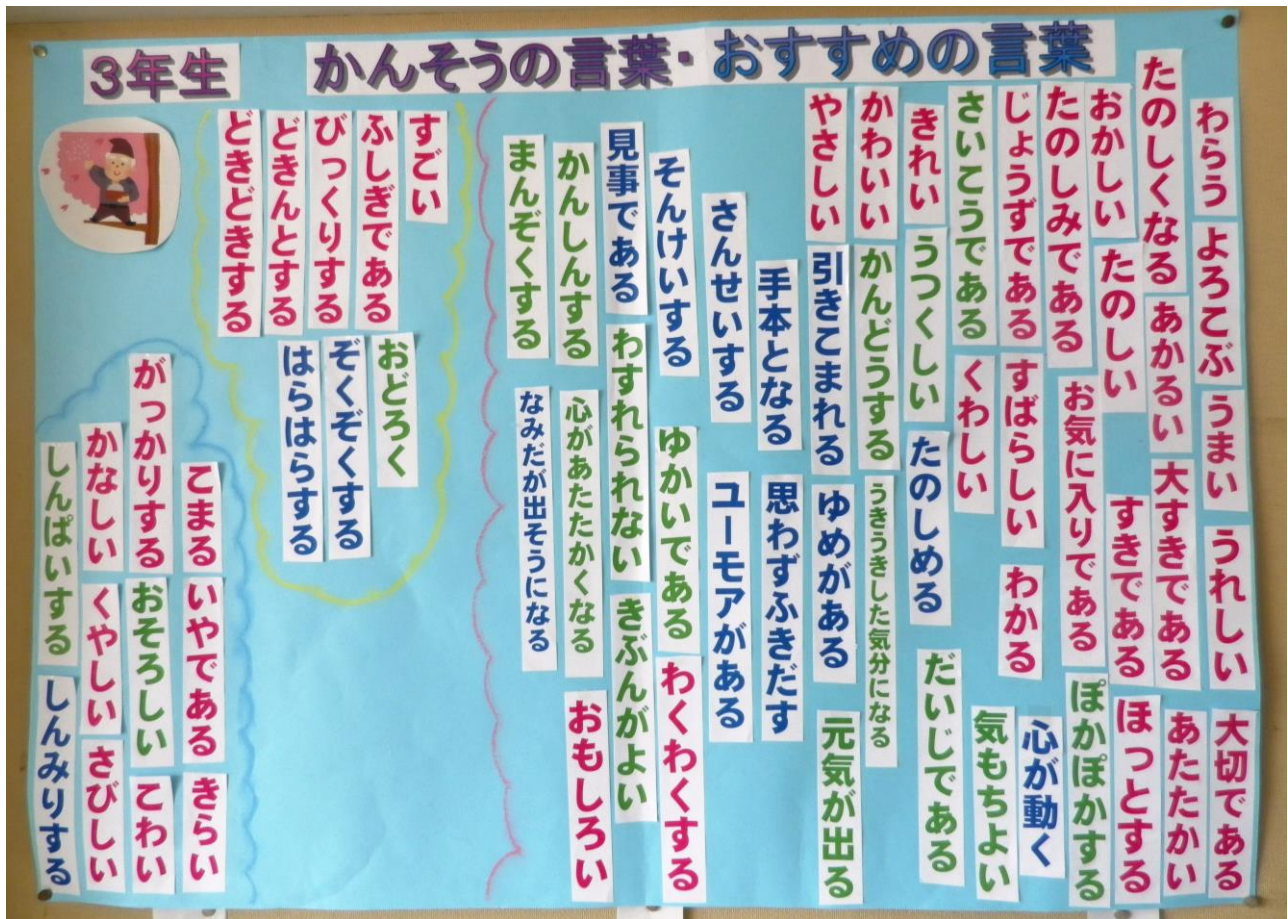 3年生
かんそうの言葉・おすすめの言葉
わらう
よろこぶ
うまい
うれしい
大切である
たのしくなる
あかるい
大すきである
あたたかい
おかしい
たのしい
すきである
ほっとする
たのしみである
お気に入りである
ぽかぽかする
じょうずである
すばらしい
わかる
心が動く
さいこうである
くわしい
気もちよい
きれい
うつくしい
たのしめる
だいじである
かわいい
かんどうする
うきうきした気分になる
やさしい
引きこまれる
ゆめがある
元気が出る
手本となる
思わずふきだす
さんせいする
ユーモアがある
そんけいする
ゆかいである
わくわくする
見事である
わすれられない
きぶんがよい
かんしんする
心があたたかくなる
おもしろい
まんぞくする
なみだが出そうになる
すごい
ふしぎである
びっくりする
どきんとする
どきどきする
おどろく
ぞくぞくする
はらはらする
こまる
いやである
きらい
がっかりする
おそろしい
こわい
かなしい
くやしい
さびしい
しんぱいする
しんみりする